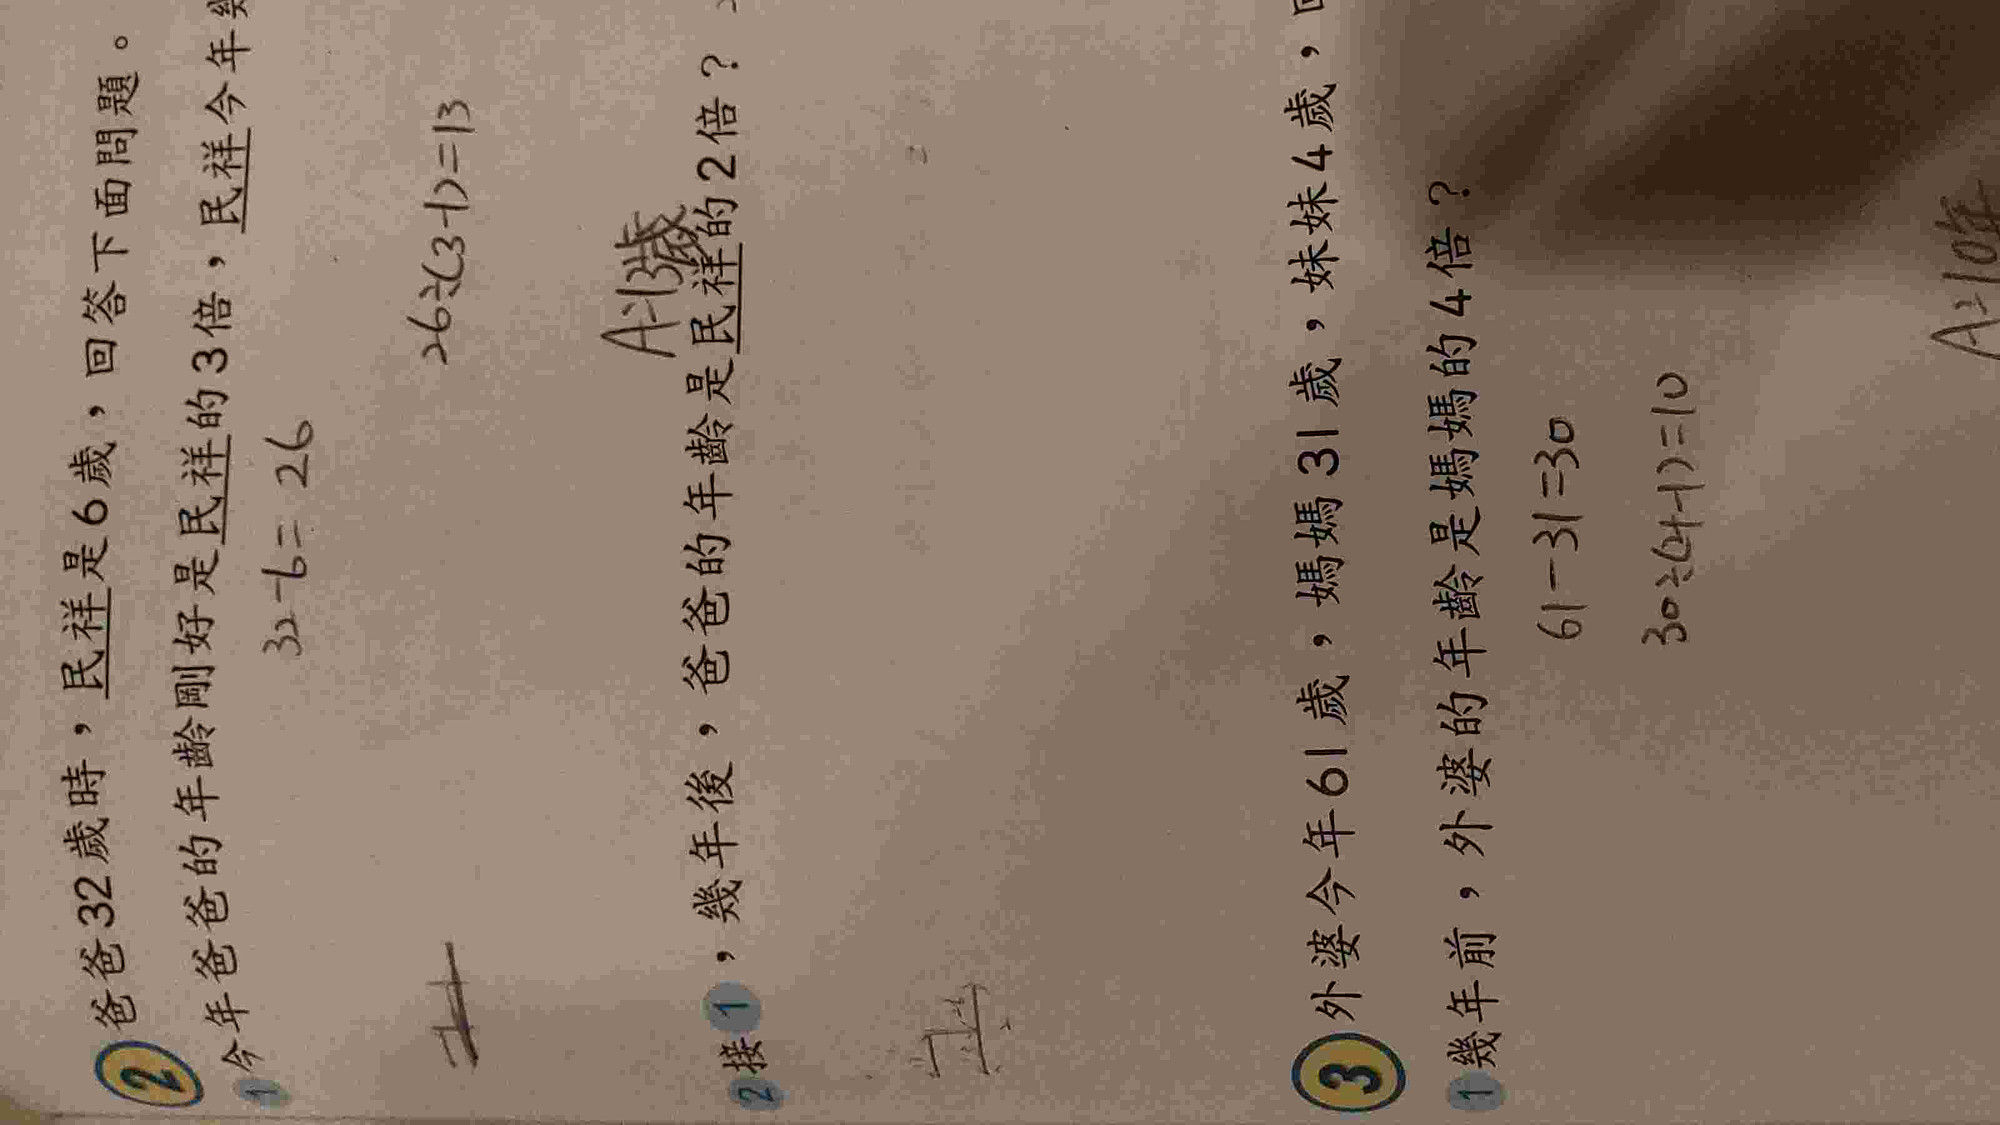 2 爸爸32歲時，民祥是6歲，回答下面問題。
1 今年爸爸的年齡剛好是民祥的3倍，民祥今年
32-6=26
26÷(3-1)=13
A：13歲
2 接1，幾年後，爸爸的年齡是民祥的2倍？
3 外婆今年61歲，媽媽31歲，妹妹4歲，
1 幾年前，外婆的年齡是媽媽的4倍？
61-31=30
30÷(4-1)=10
A：10年